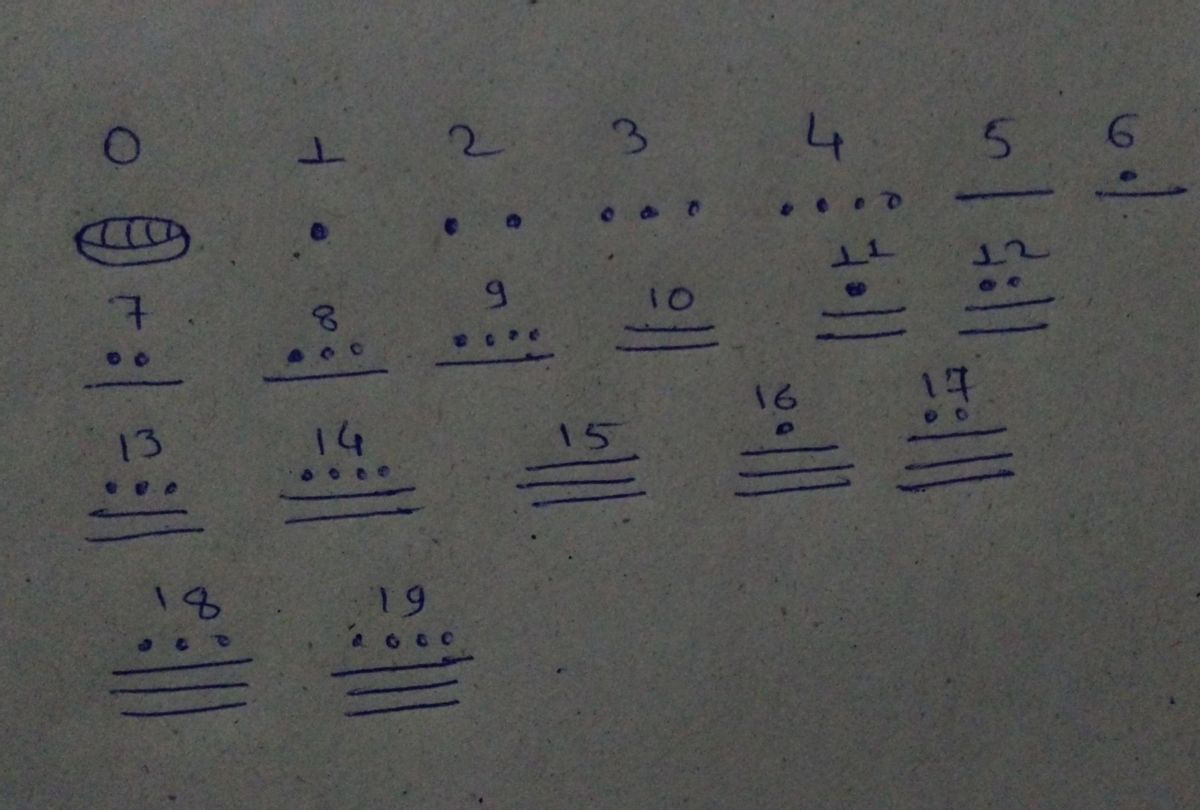 0 1 2 3 4 5 6
7 8 9 10 11 12
13 14 15 16 17
18 19